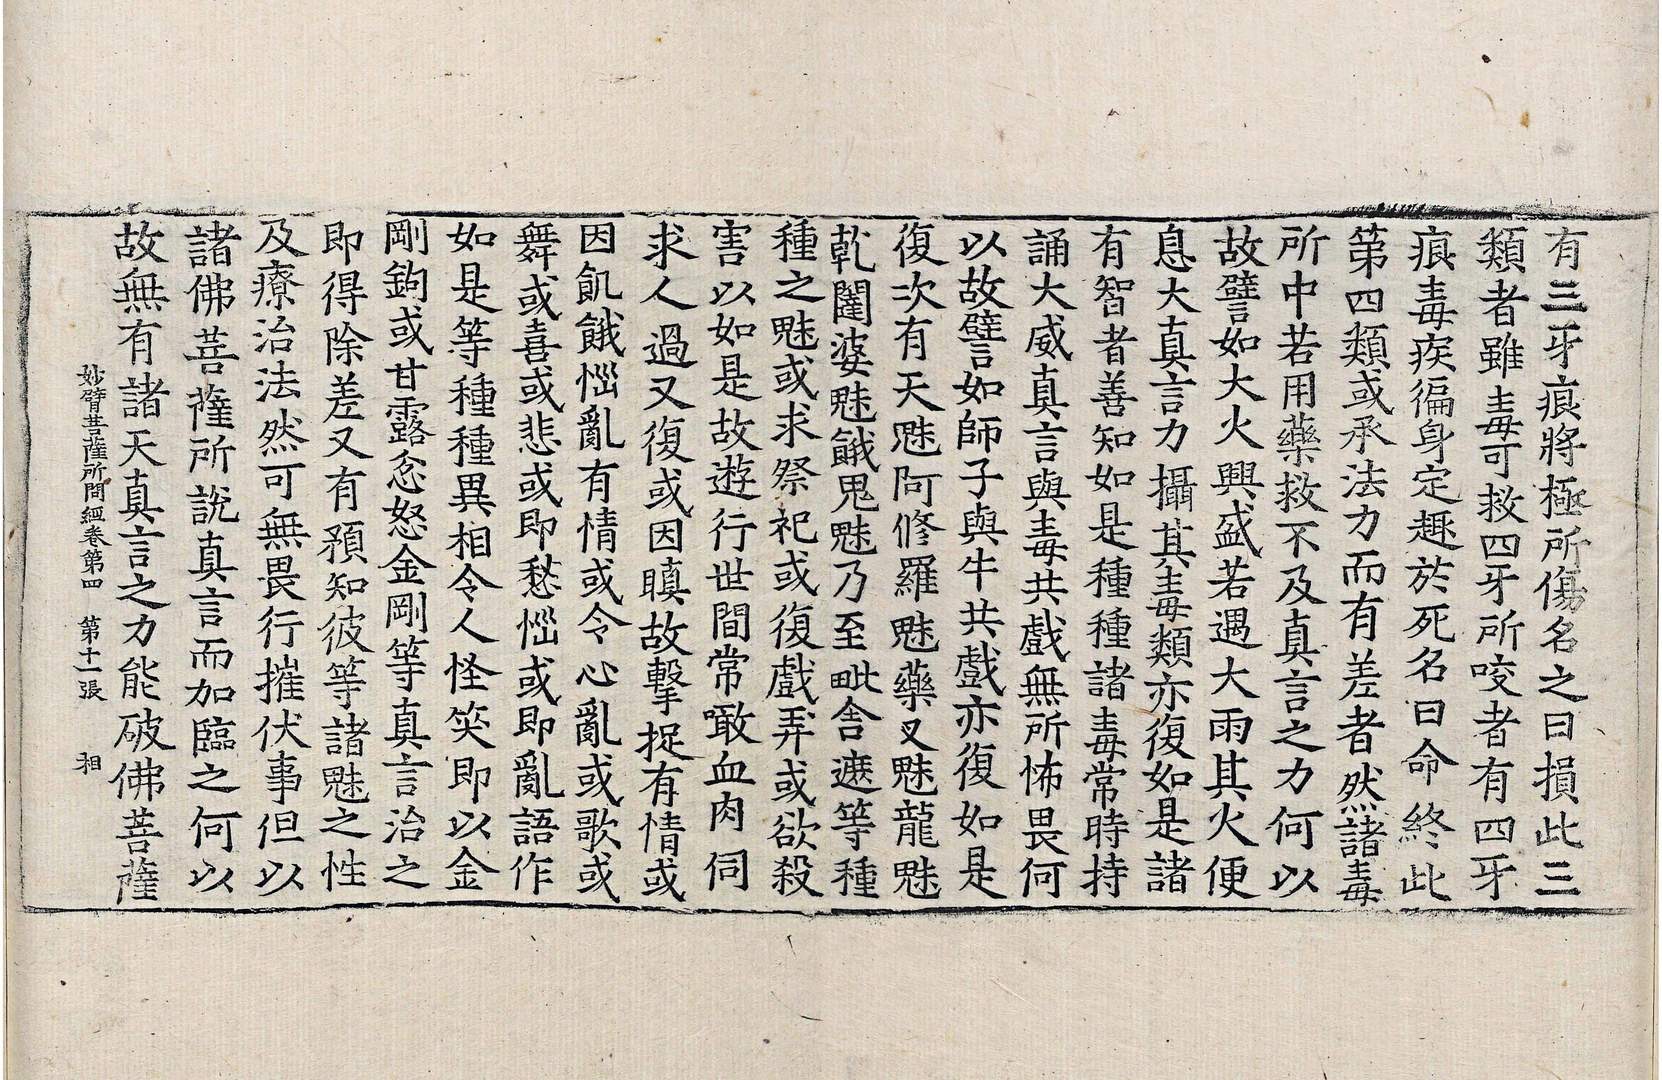 有三牙痕將極所傷名之曰損此三
類者雖毒可救四牙所咬者有四牙
痕毒疾徧身定趣於死名曰命終此
第四類或承法力而有差者然諸毒
所中若用藥救不及真言之力何以
故譬如大火興盛若遇大雨其火便
息大真言力攝其毒類亦復如是諸
有智者善知如是種種諸毒常時持
誦大威真言與毒共戲無所怖畏何
以故譬如師子與牛共戲亦復如是
復次有天魅阿修羅魅藥叉魅龍魅
乾闥婆魅餓鬼魅乃至毗舍遮等種
種之魅或求祭祀或復戲弄或欲殺
害以如是故遊行世間常噉血肉伺
求人過又復或因瞋故擊捉有情或
因飢餓惱亂有情或令心亂或歌或
舞或喜或悲或即愁惱或即亂語作
如是等種種異相令人怪笑即以金
剛鉤或甘露忿怒金剛等真言治之
即得除差又有預知彼等諸魅之性
及療治法然可無畏行摧伏事但以
諸佛菩薩所說真言而加臨之何以
故無有諸天真言之力能破佛菩薩
妙臂菩薩所問經卷第四 第十一張 相